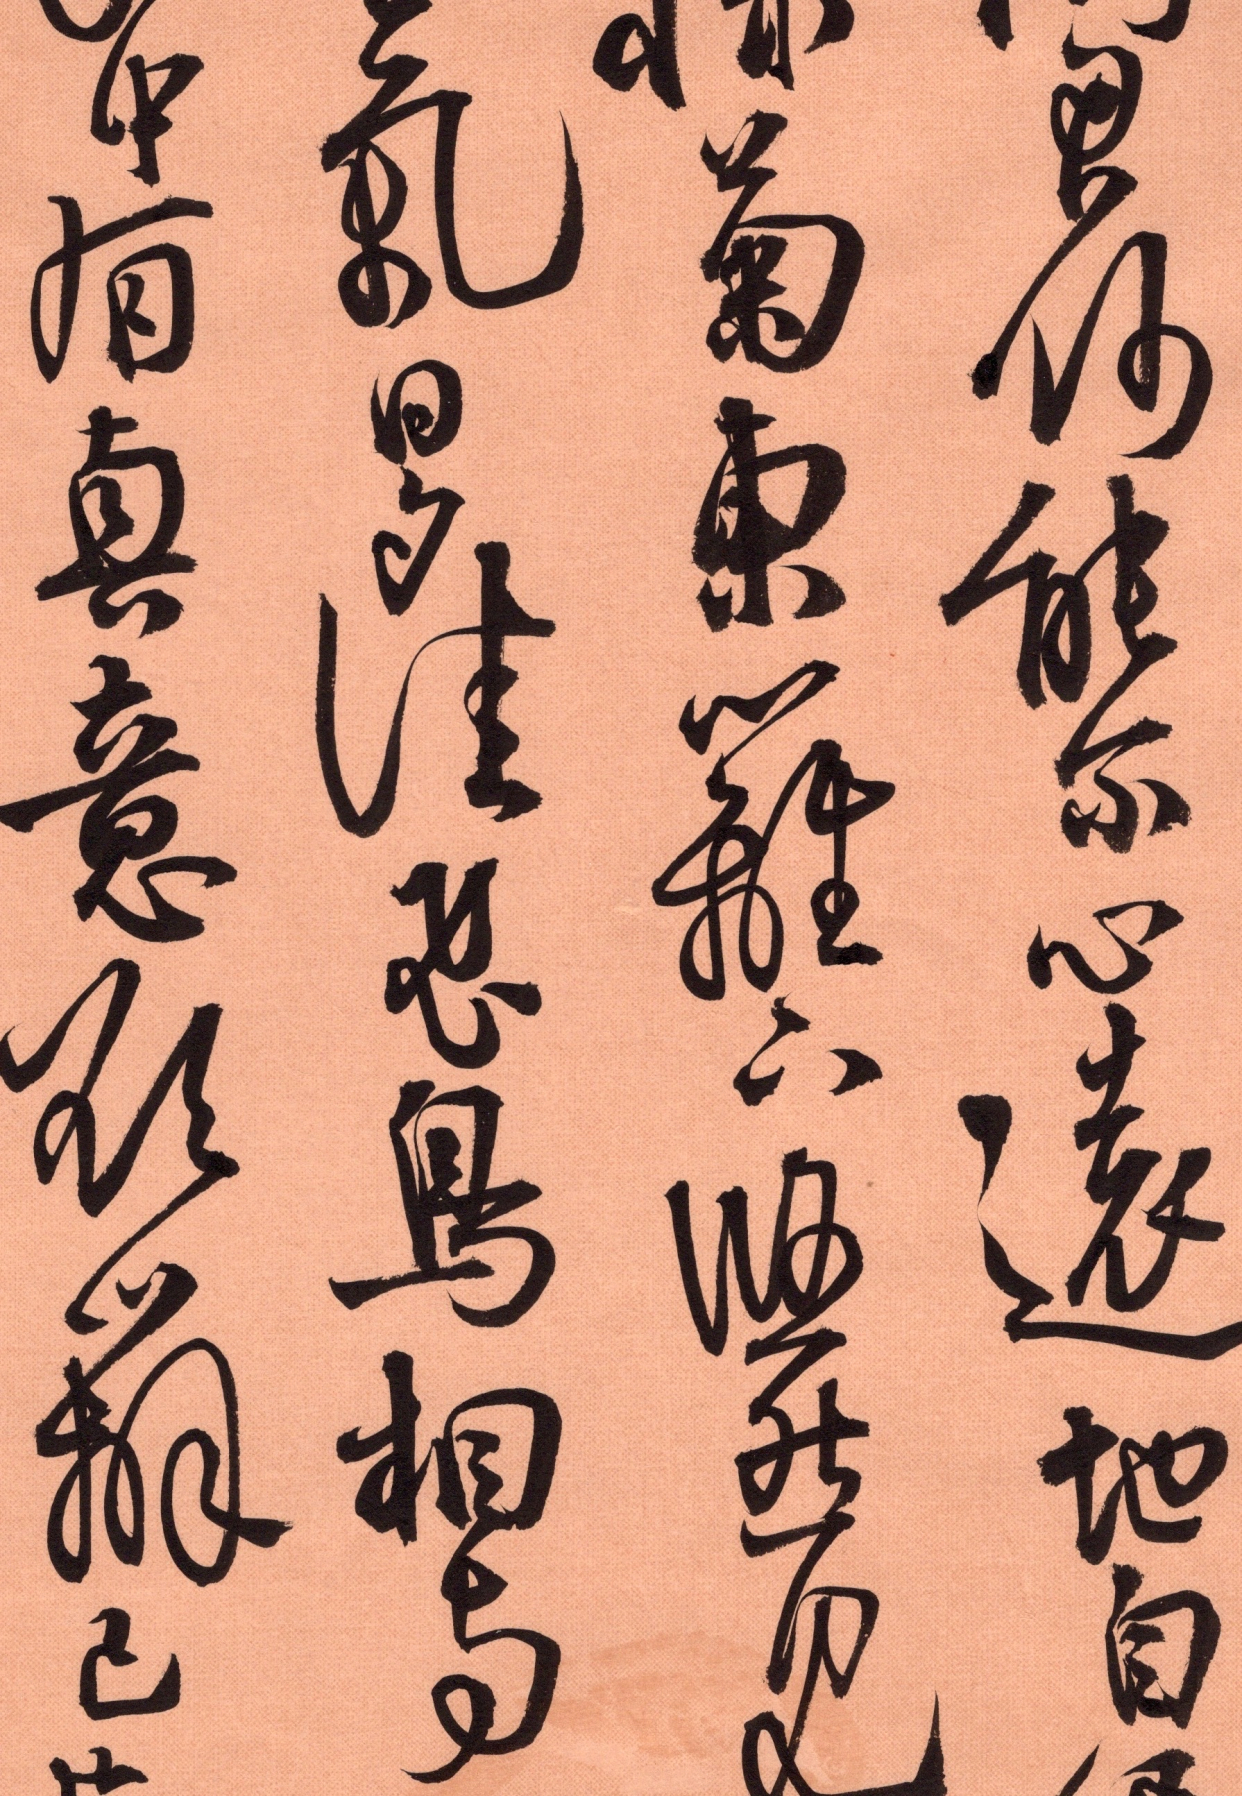 君何能尔心遠地自
菊東籬下悠然見
氣日夕佳飛鳥相与
中有真意欲辨已